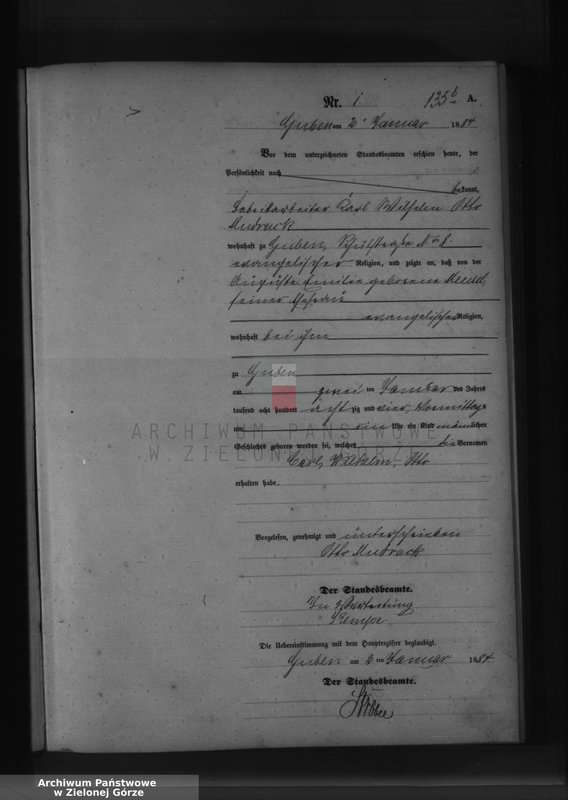 Nr. 1 135b A.
Guben am 2. Januar 1884
Vor dem unterzeichneten Standesbeamten erschien heute, der
Persönlichkeit nach
bekannt,
Fabrikarbeiter Karl Wilhelm Otto
Mudrack
wohnhaft zu Guben, No 8.
evangelischer Religion, und zeigte an, daß von der
Auguste Emilie geborene
seiner Ehefrau
evangelischer Religion,
wohnhaft bei ihm
zu Guben
am zwei ten Januar des Jahres
tausend acht hundert acht zig und vier, Vormittags
um Uhr ein Kind männlichen
Geschlechts geboren worden sei, welches die Vornamen
Carl Wilhelm Otto
erhalten habe.
Vorgelesen, genehmigt und unterschrieben
Otto Mudrack
Der Standesbeamte.
In Vertretung
Die Uebereinstimmung mit dem Hauptregister beglaubigt.
Guben am 2 ten Januar 1884.
Der Standesbeamte.
ARCHIWUM PAŃSTWOWE
W ZIELONEJ GÓRZE
Archiwum Państwowe
w Zielonej Górze